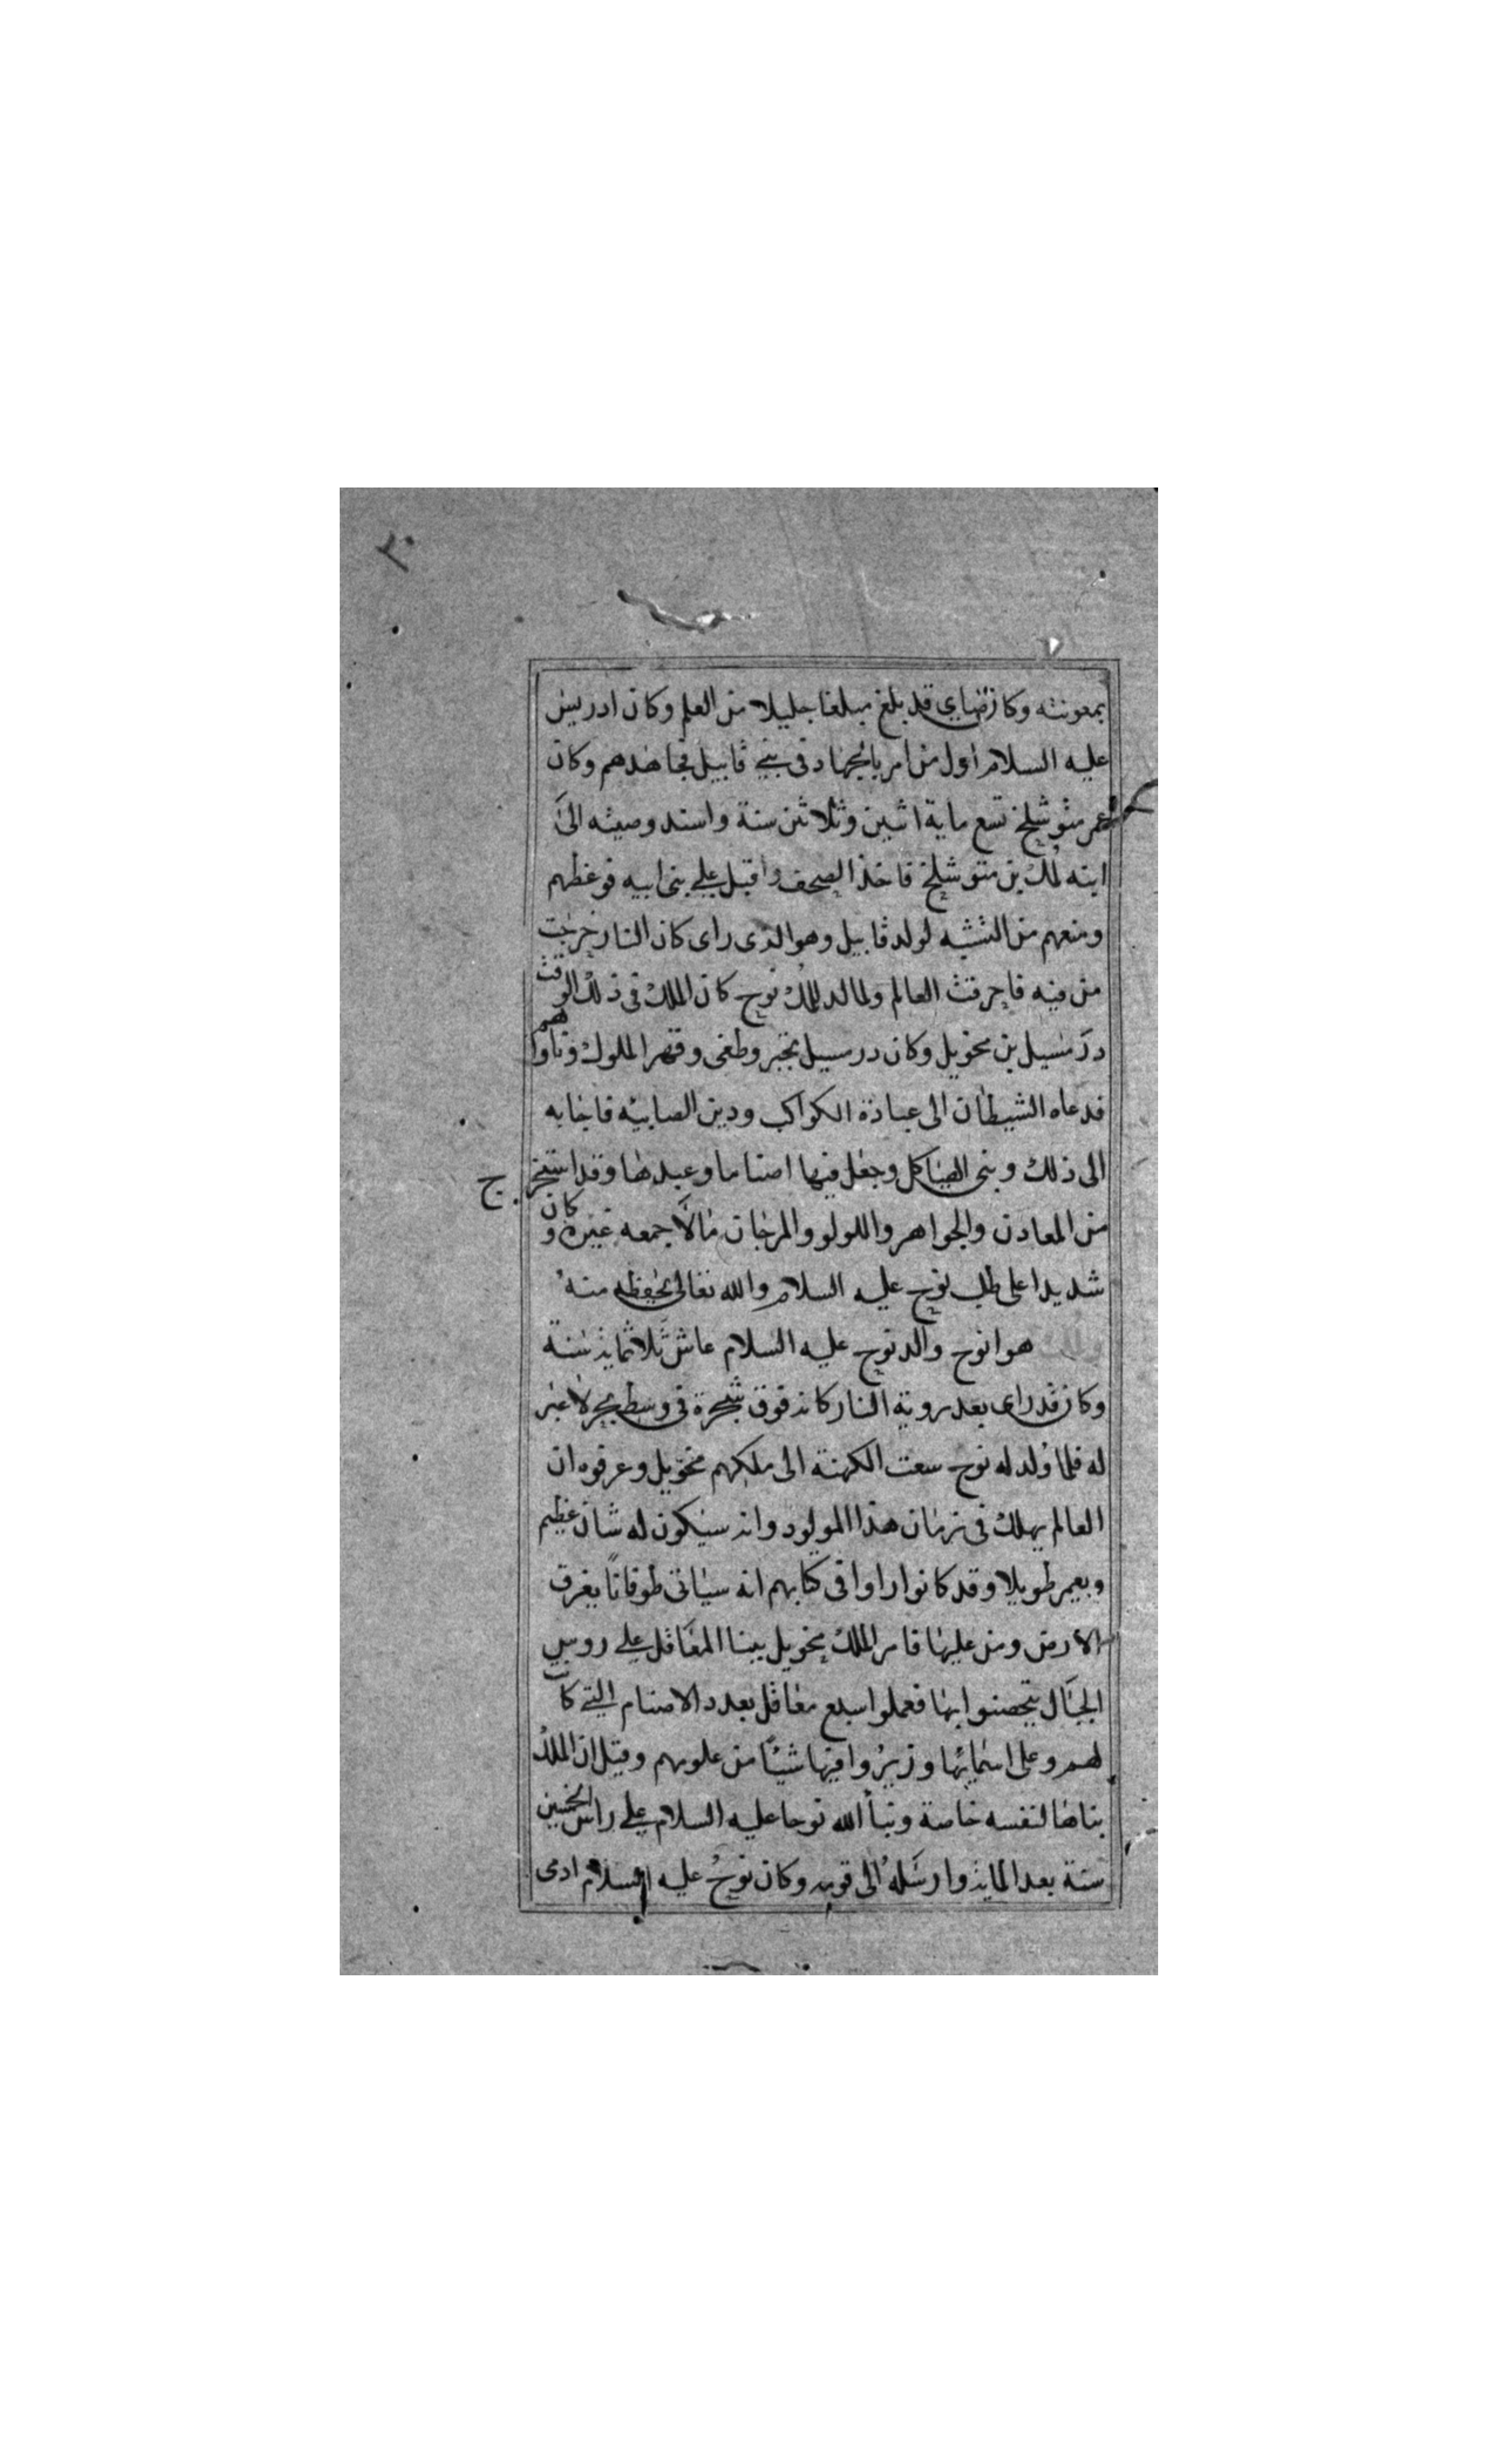 ٢٠
بمعونته وكان صابي قد بلغ مبلغا جليلا من العلم وكان ادريس
عليه السلام اول من امر بالجهاد في بني قابيل فجاهدهم وكان
عمر متوشلخ تسع ماية اثنين وثلاثين سنة واسند وصيته الى
ابنه لمك بن متوشلخ فاخذ الصحف واقبل على بني ابيه فوعظهم
ومنعهم من التشبه لولد قابيل وهو الذى راى كان النار خرجت
من فيه فاحرقت العالم ولما لد للمك نوح كان الملك في ذلك الوقت
درمسيل بن مخويل وكان درمسيل تجبر وطغى وقهر الملوك وناواهم
فدعاه الشيطان الى عبادة الكواكب ودين الصابيه فاجابه
الى ذلك وبنى الهياكل وجعل فيها اصناما وعبدها وقد استخرج
من المعادن والجواهر واللولو والمرجان مالا جمعه غيره وكان
شديدا على طلب نوح عليه السلام والله تعالى يحفظه منه
هو ابو نوح والد نوح عليه السلام عاش ثلاثماية سنة
وكان قد راى بعد روية النار كانه فوق شجرة في وسط بحر لا غير
له فلما ولد له نوح سعت الكهنة الى ملكهم مخويل وعرفوه ان
العالم يهلك في زمان هذا المولود وانه سيكون له شان عظيم
ويعمر طويلا وقد كانوا راوا في كتابهم انه سياتى طوفانا يغرق
الارض ومن عليها فامر الملك مخويل ببنا المعاقل على روس
الجبال يتحصنوا بها فعملوا سبع معاقل بعدد الاصنام التي كانت
لهم وعلى اسمايها وزبروا فيها شيئا من علومهم وقيل ان الملك
بناها لنفسه خاصة ونبأ الله نوحا عليه السلام على راس الخمسين
سنة بعد الماية وارسله الى قومه وكان نوح عليه السلام ادمى